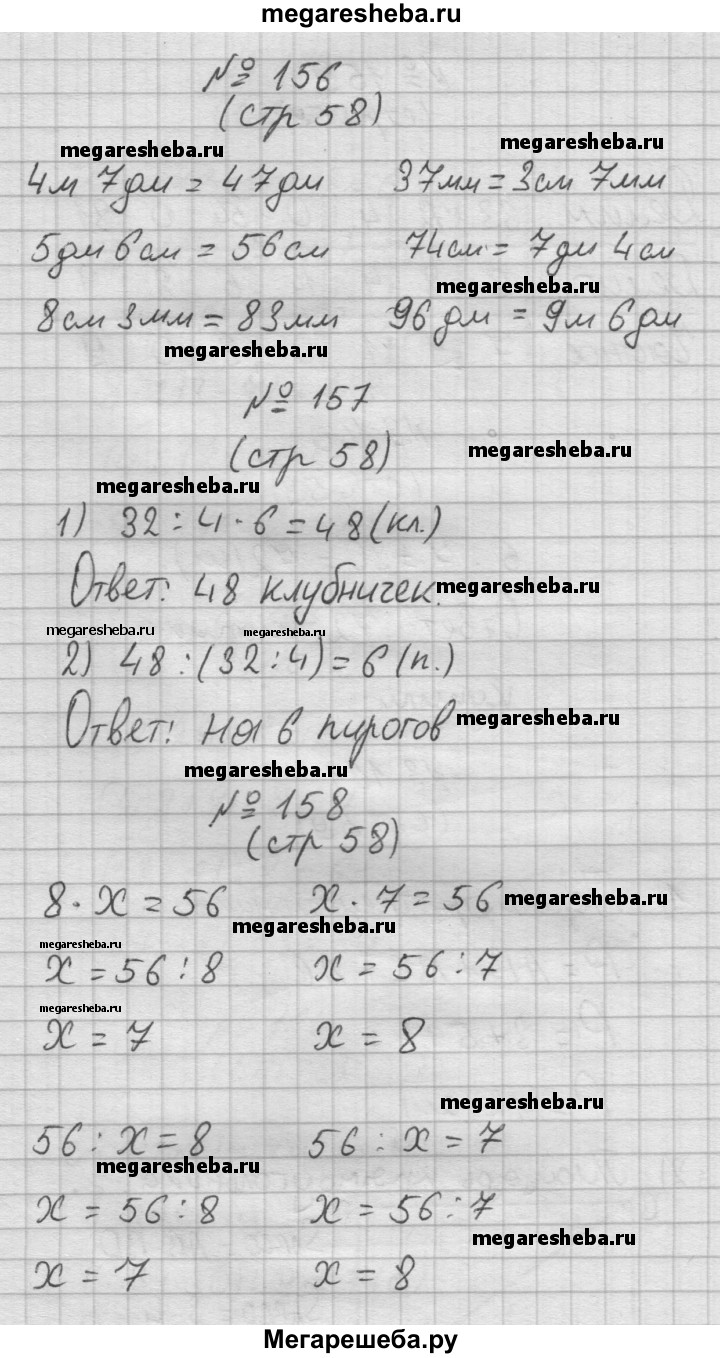 megaresheba.ru
№ 156
(стр 58)
megaresheba.ru megaresheba.ru
4м 7дм = 47дм 37мм = 3см 7мм
5дм 6см = 56см 74см = 7дм 4см
megaresheba.ru
8см 3мм = 83мм 96дм = 9м 6дм
megaresheba.ru
№ 157
(стр 58) megaresheba.ru
megaresheba.ru
1) 32 : 4 · 6 = 48 (кл.)
Ответ: 48 клубничек. megaresheba.ru
megaresheba.ru megaresheba.ru
2) 48 : (32 : 4) = 6 (п.)
Ответ: на 6 пирогов megaresheba.ru
megaresheba.ru
№ 158
(стр 58)
8 · x = 56 x · 7 = 56 megaresheba.ru
megaresheba.ru
megaresheba.ru
x = 56 : 8 x = 56 : 7
megaresheba.ru
x = 7 x = 8
megaresheba.ru
56 : x = 8 56 : x = 7
megaresheba.ru
x = 56 : 8 x = 56 : 7
megaresheba.ru
x = 7 x = 8
Мегарешеба.ру